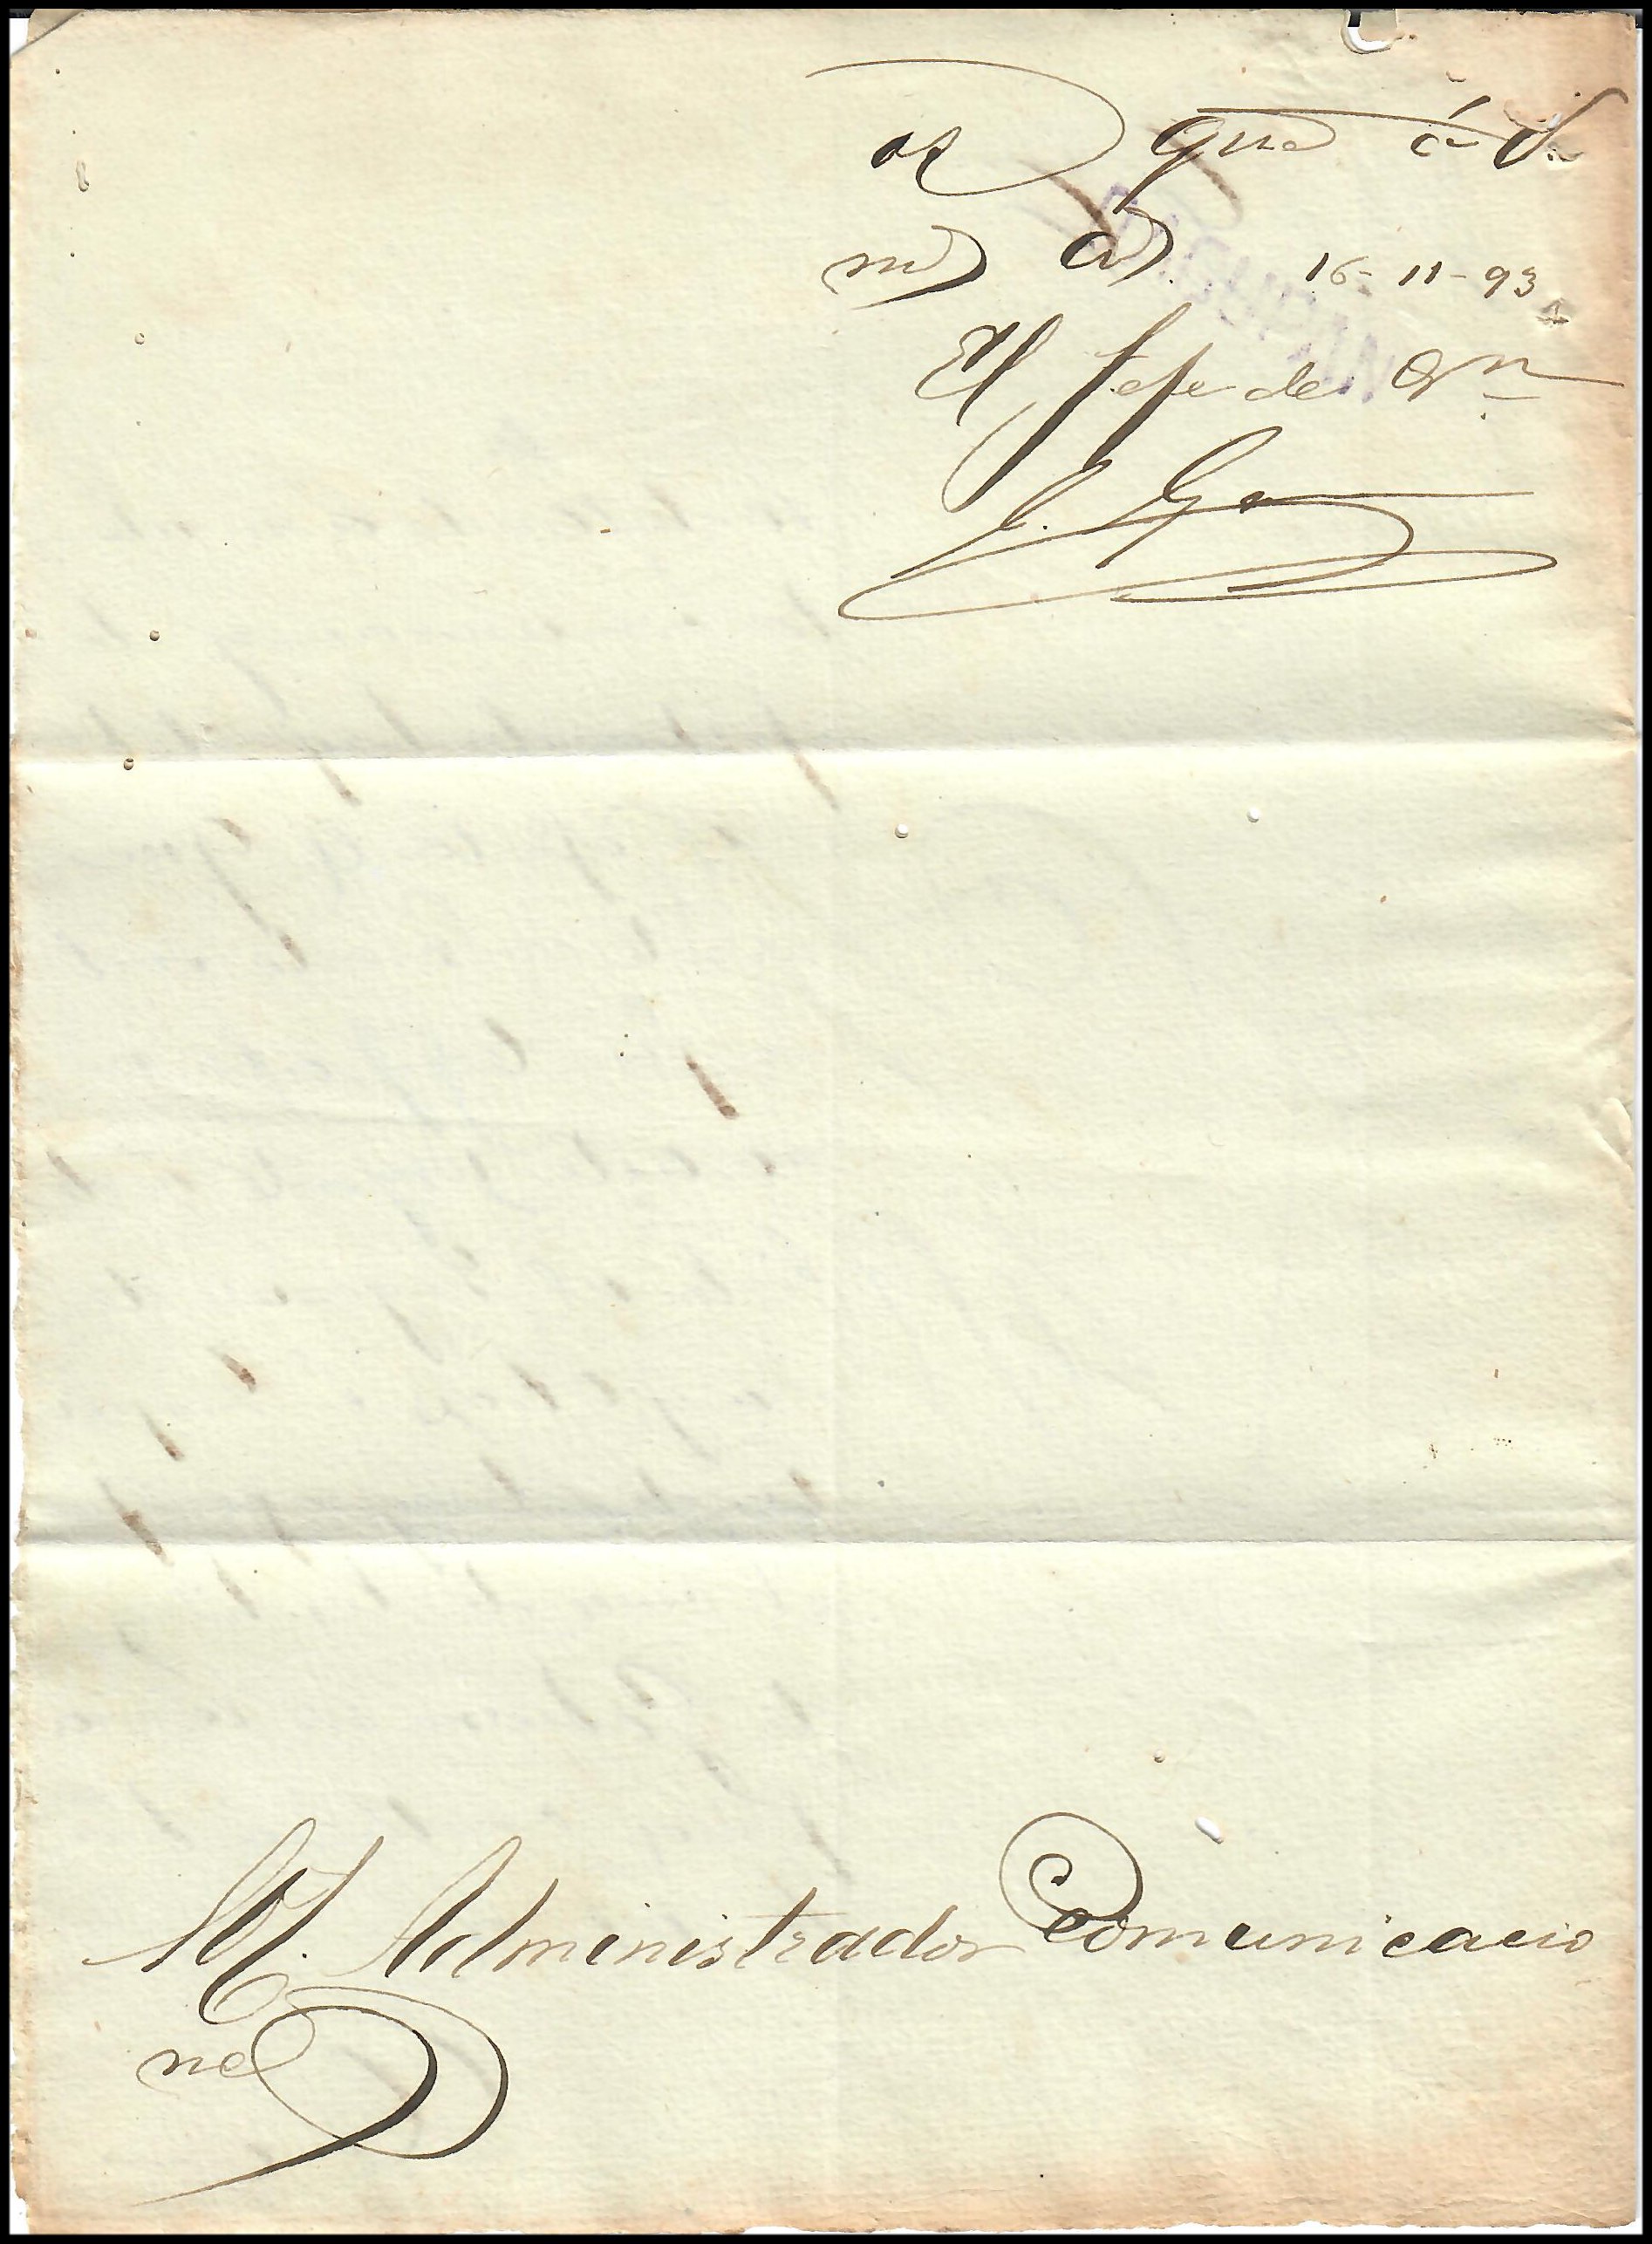 os gue á V.
ms as. 16-11-93
El Jefe de On
Sr. Administrador Comunicacio
nes